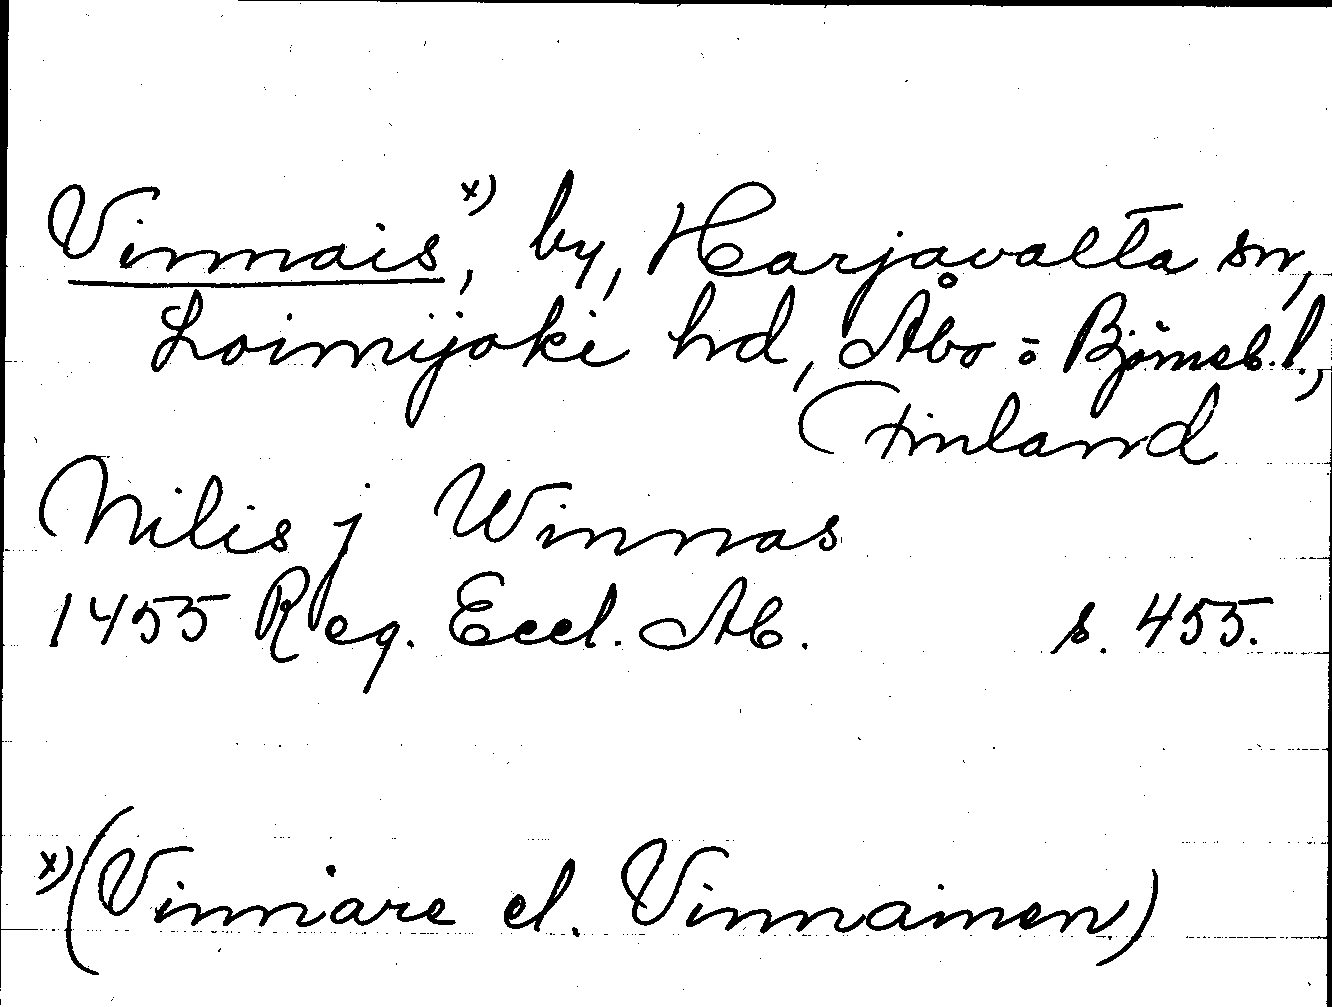 Vinnais x), by, Harjavalta sn,
Loimijoki hd, Åbo = Björneb. l.,
Finland
Nilis j Winnas
1455 Reg. Eccl. Ab. s. 455.
x) (Vinniare el. Vinnainen)